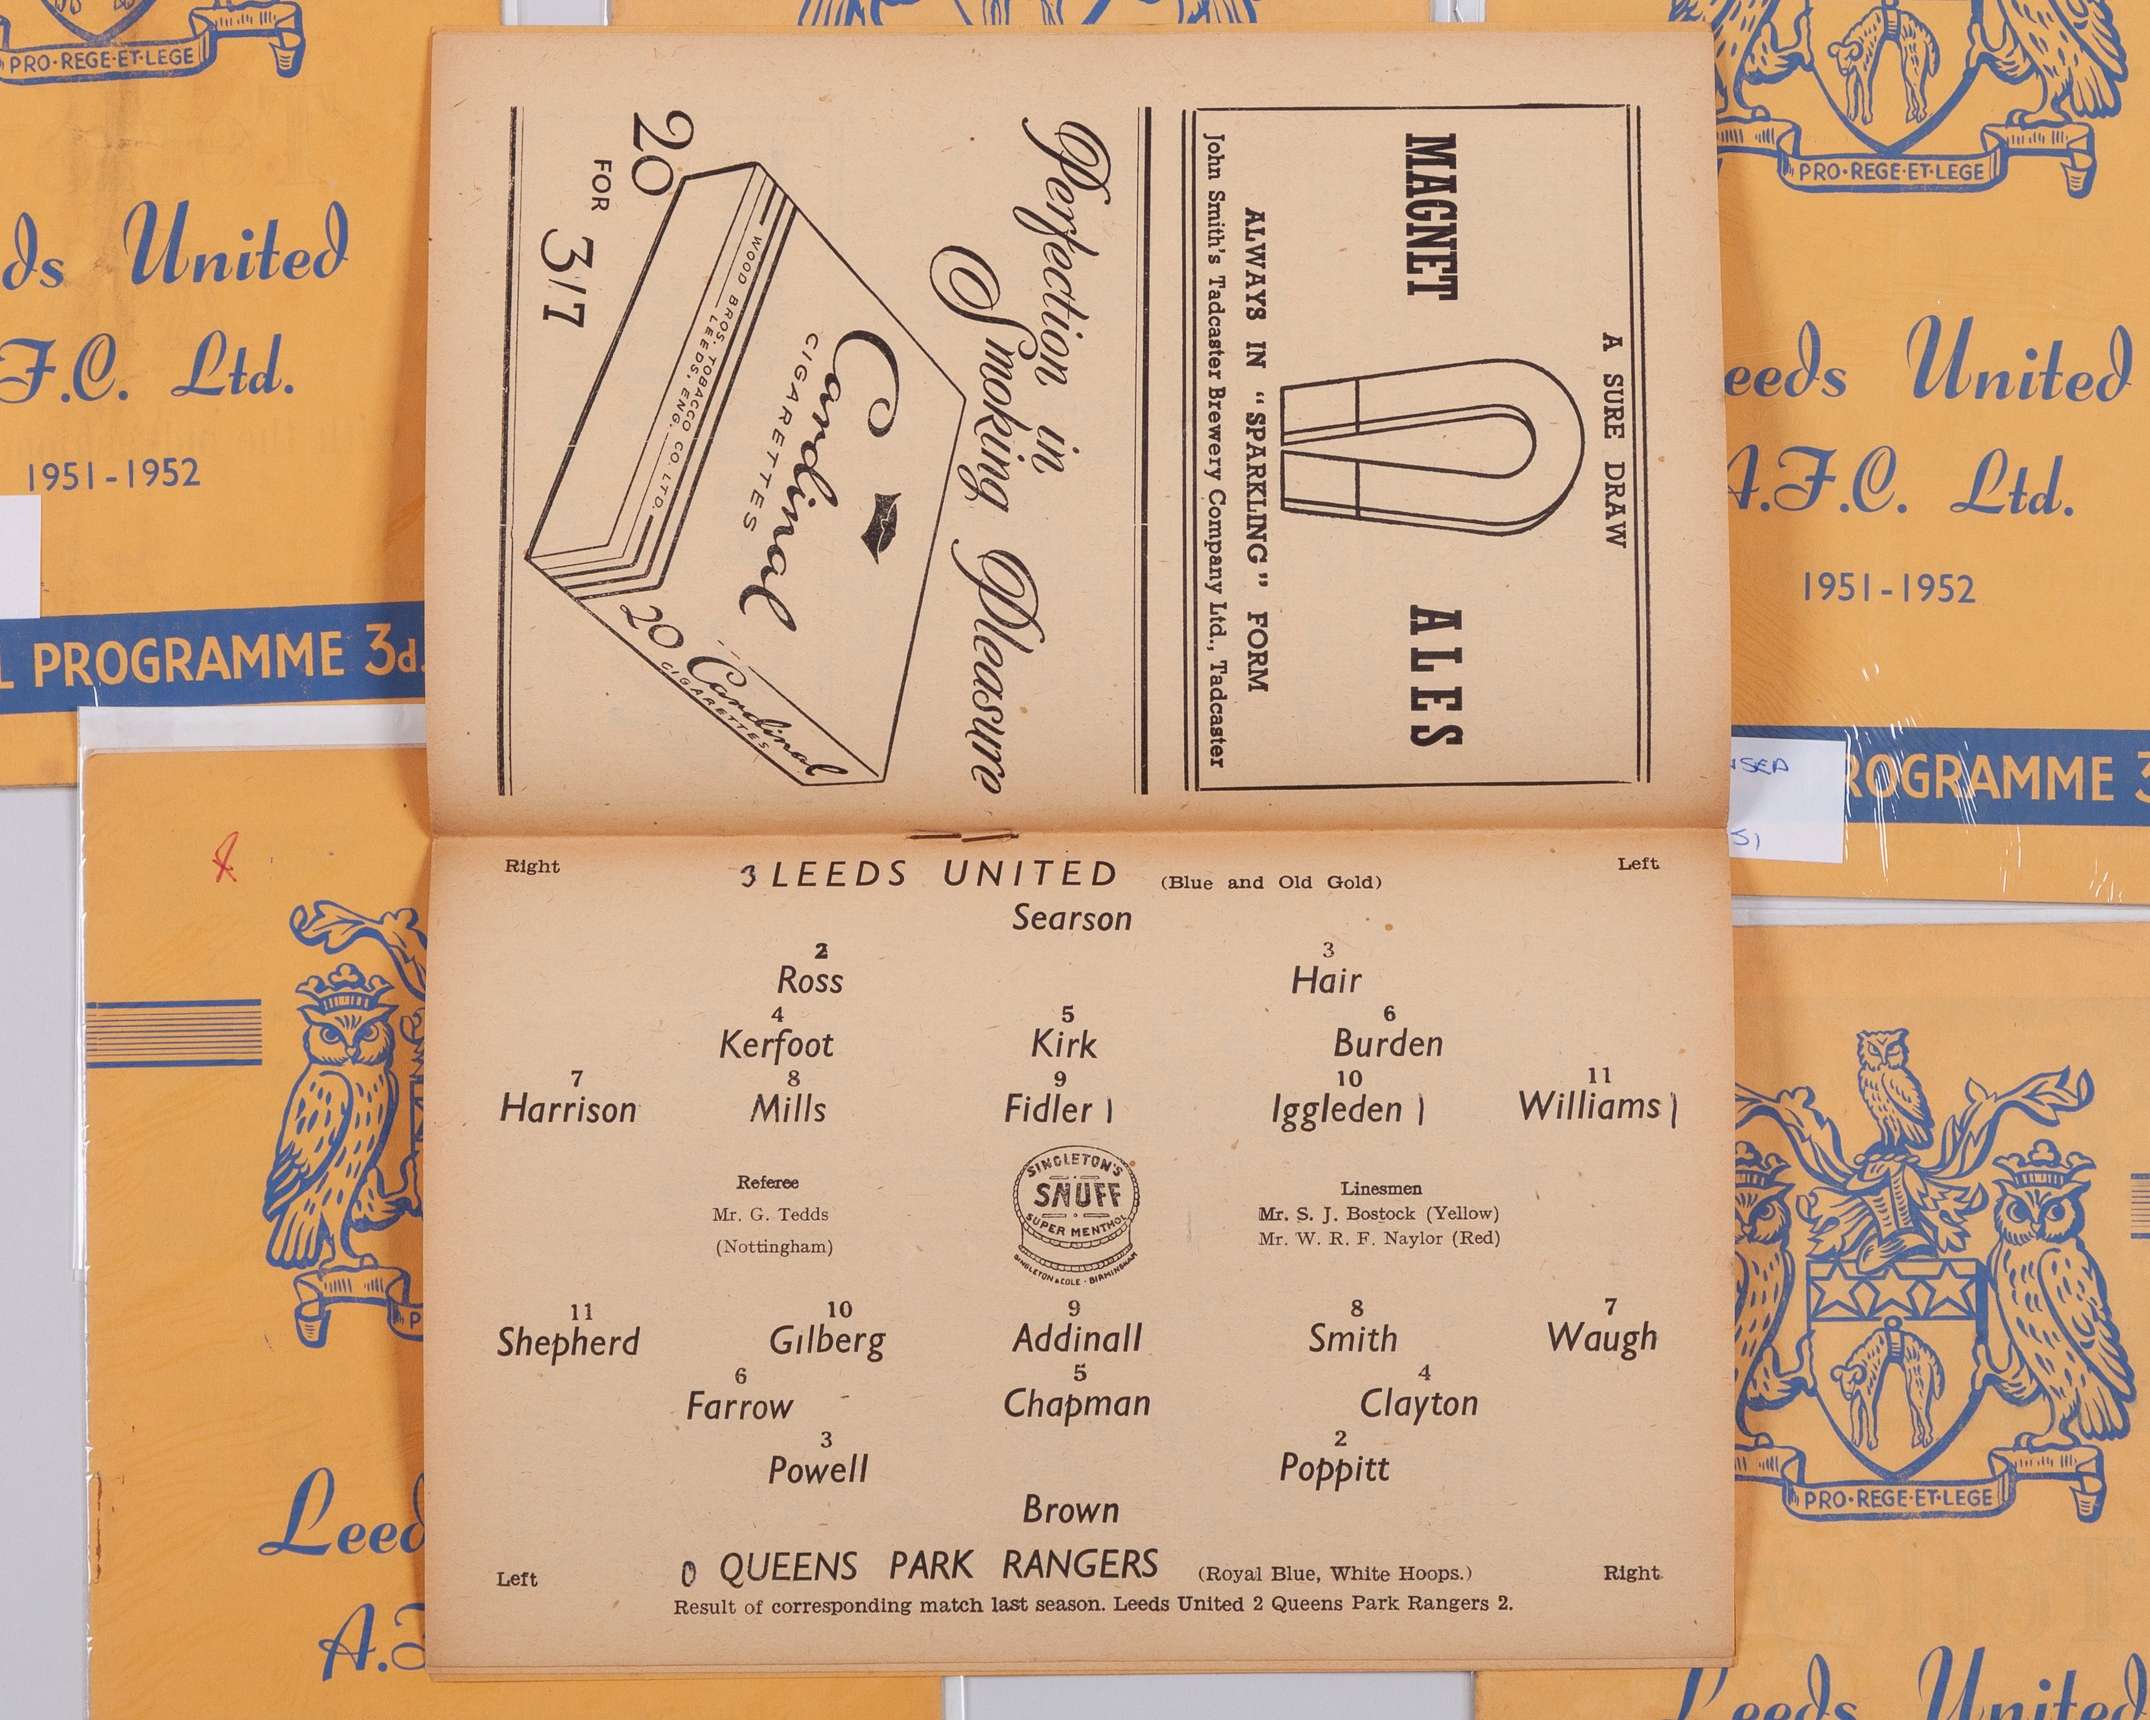 PRO·REGE·ET·LEGE
ds United
F.C. Ltd.
1951-1952
L PROGRAMME 3d.
PRO·REGE·ET·LEGE
eeds United
A.F.C. Ltd.
1951-1952
ROGRAMME 3
51
A SURE DRAW
MAGNET ALES
ALWAYS IN "SPARKLING" FORM
John Smith's Tadcaster Brewery Company Ltd., Tadcaster
Perfection in
Smoking Pleasure
Cardinal
CIGARETTES
WOOD BROS. TOBACCO CO. LTD.
LEEDS, ENG.
20 Cardinal
CIGARETTES
20
FOR
3/7
Right
3 LEEDS UNITED (Blue and Old Gold)
Left
Searson
2 3
Ross Hair
4 5 6
Kerfoot Kirk Burden
7 8 9 10 11
Harrison Mills Fidler 1 Iggleden 1 Williams 1
Referee
Mr. G. Tedds
(Nottingham)
SINGLETON'S
SNUFF
SUPER MENTHOL
SINGLETON & COLE · BIRMINGHAM
Linesmen
Mr. S. J. Bostock (Yellow)
Mr. W. R. F. Naylor (Red)
11 10 9 8 7
Shepherd Gilberg Addinall Smith Waugh
6 5 4
Farrow Chapman Clayton
3 2
Powell Poppitt
Brown
Left
0 QUEENS PARK RANGERS (Royal Blue, White Hoops.)
Right
Result of corresponding match last season. Leeds United 2 Queens Park Rangers 2.
P
Leed
A.F
PRO·REGE·ET·LEGE
Leeds United